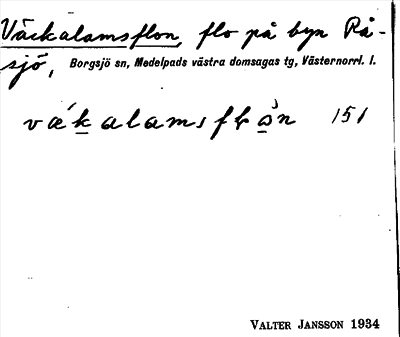 Väckalamsflon, flo på byn Rå-
sjö, Borgsjö sn, Medelpads västra domsagas tg, Västernorrl. l.
151
VALTER JANSSON 1934